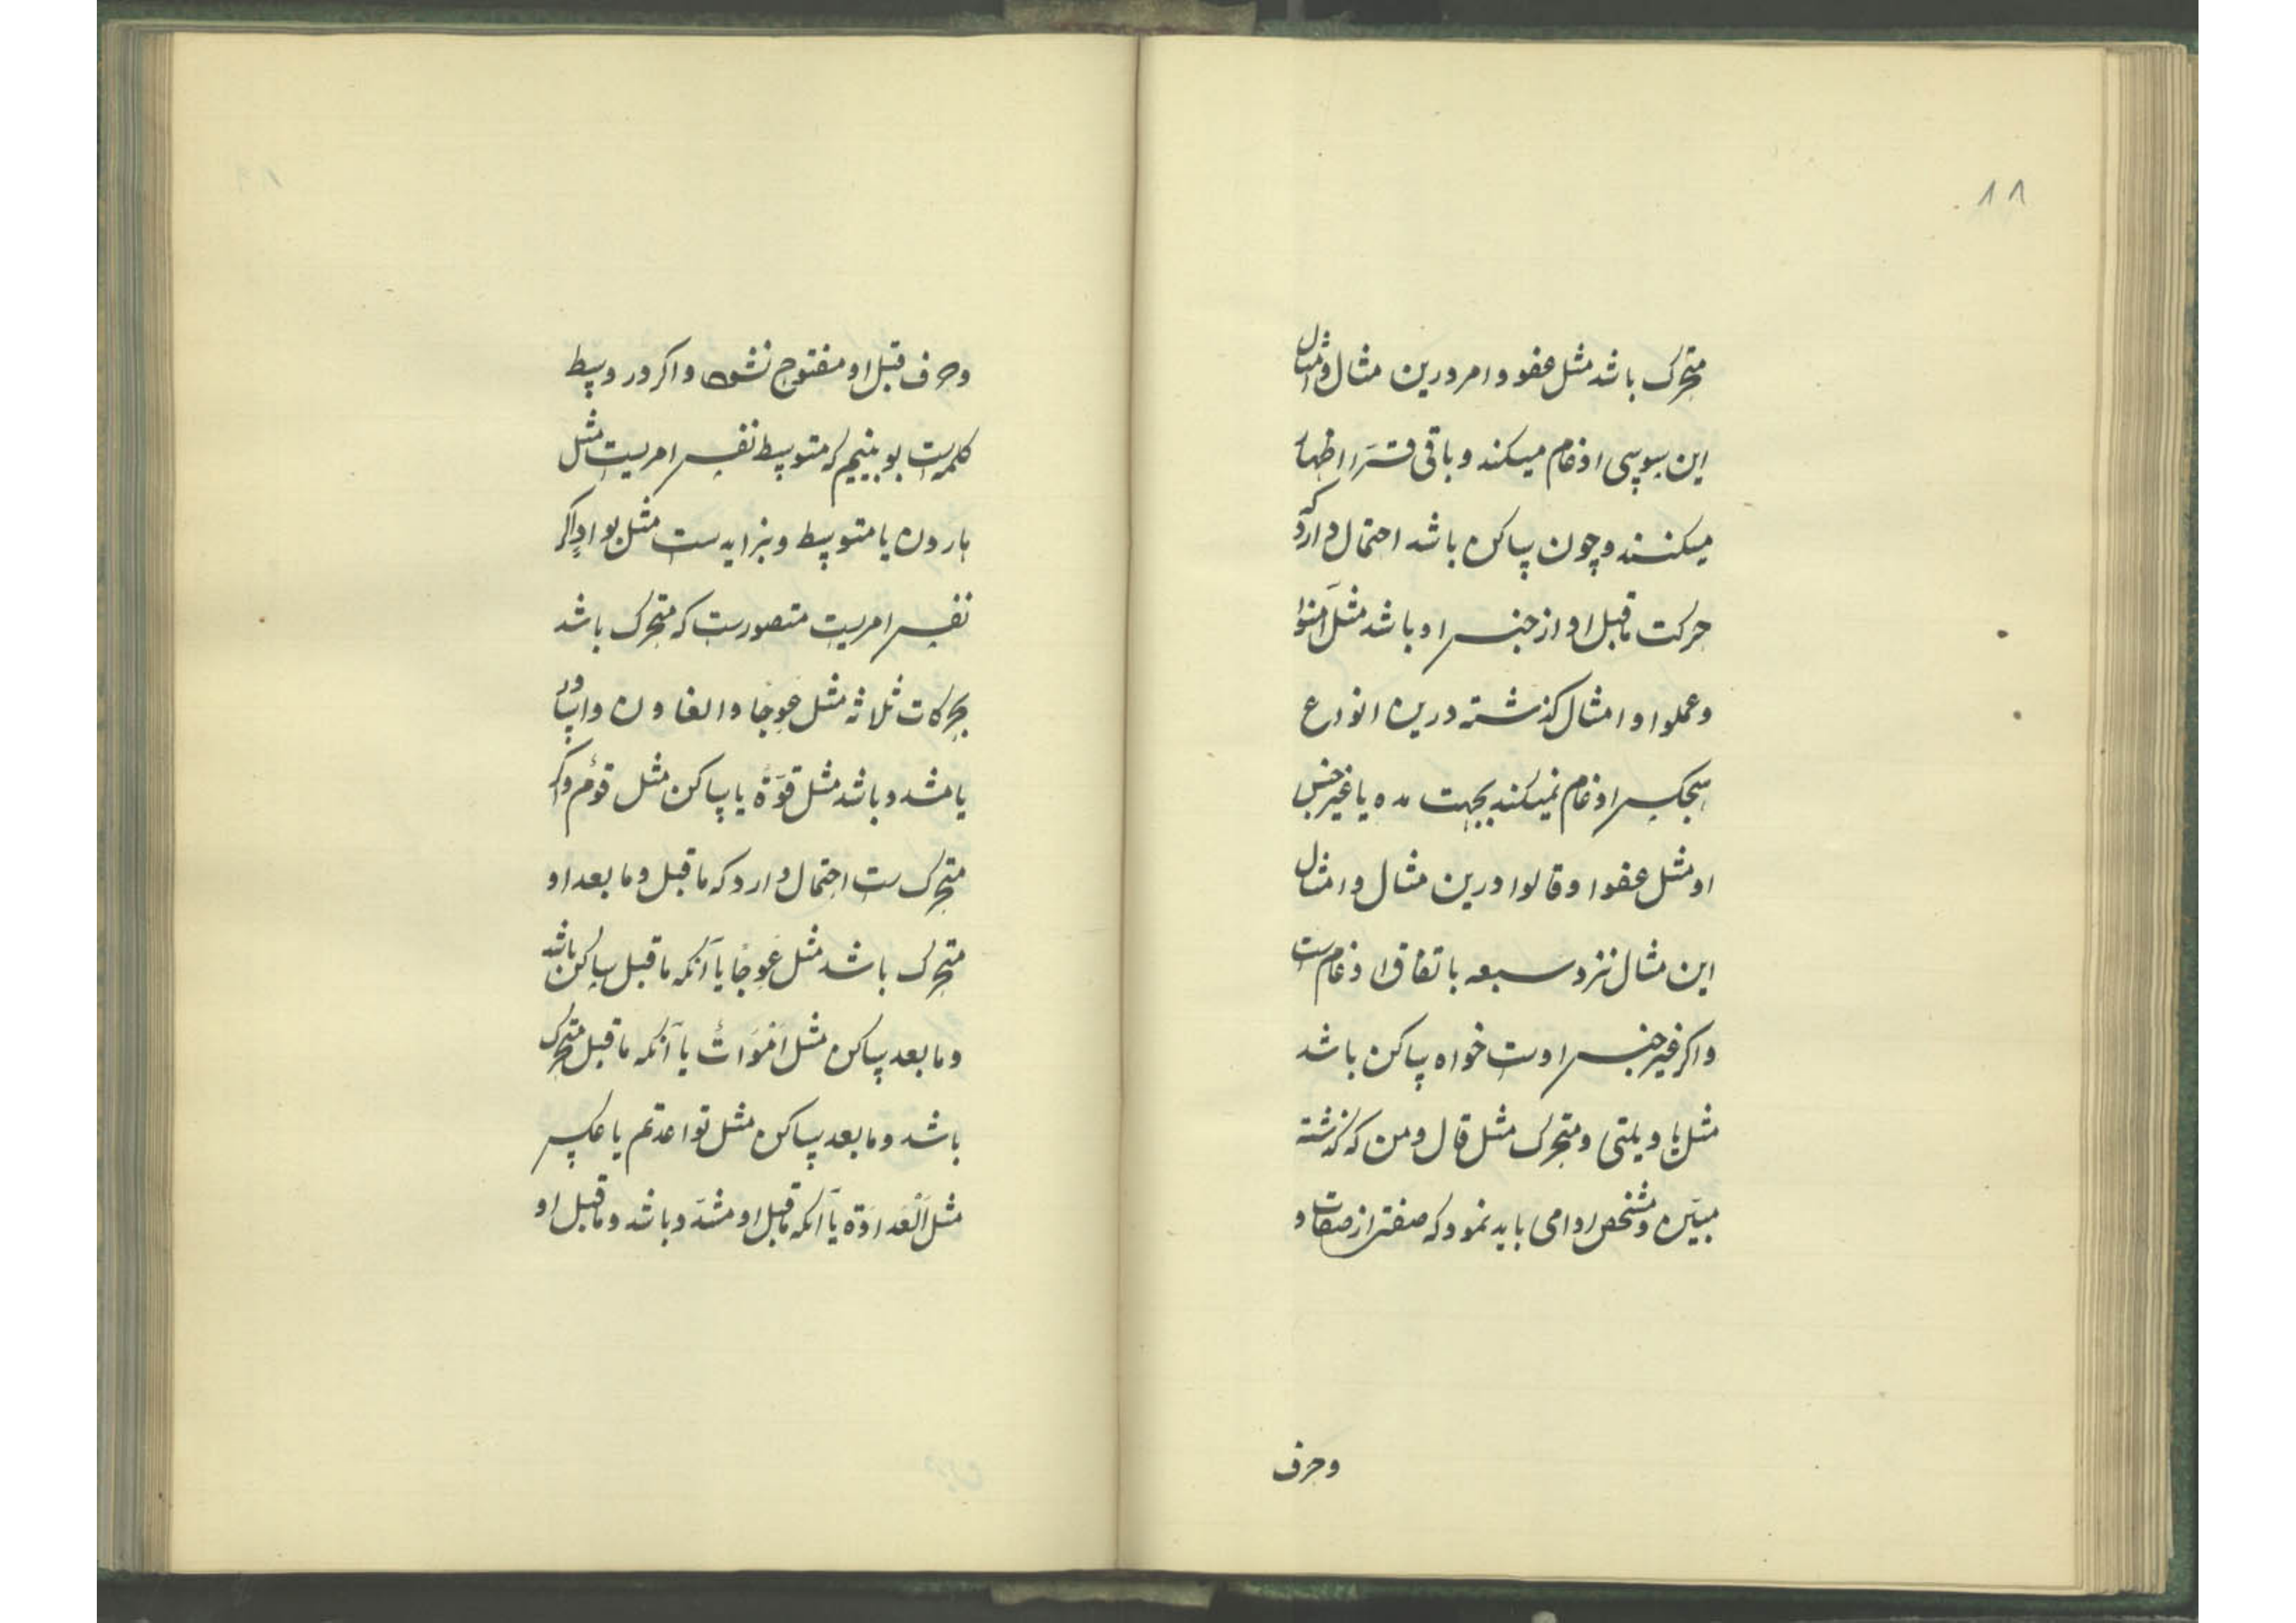 ۸۸
متحرک باشد مثل عفو وامر درین مثال وامثال
این سوسی ادغام میکند وباقی قرّاء اظهار
میکنند وچون ساکن باشد احتمال دارد که
حرکت ماقبل او از جنس او باشد مثل آمنوا
وعملوا وامثال گذشته درین انواع
هیچکس ادغام نمیکند بجهت مده یا غیر جنس
او مثل عفوا وقالوا درین مثال وامثال
این مثال نزد سبعه باتفاق ادغامست
واکر غیر جنس اوست خواه ساکن باشد
مثل یا ویلتی ومتحرک مثل قال ومن که گذشته
مبیّن ومشخص ادا می باید نمود که صفتی از صفات و
وحرف
وحرف قبل او مفتوح نشود واکر در وسط
کلمه است بوبینیم که متوسط نفس امریست مثل
هارون یا متوسط وبزایه ست مثل بوادٍ اکر
نفس امریست متصورست که متحرک باشد
بحرکات ثلاثه مثل عِوجًا والغاون
یا مشدد باشد مثل قوّة یا ساکن مثل قوم واکر
متحرک ست احتمال دارد که ماقبل وما بعد او
متحرک باشد مثل عِوجًا یا آنکه ماقبل ساکن باشد
وما بعد ساکن مثل اَمْوَاتٌ یا آنکه ماقبل متحرک
باشد وما بعد ساکن مثل تواعدتم یا عکس
مثل اَلْعَدَاوَة یا آنکه ماقبل او مشدّد باشد وماقبل او